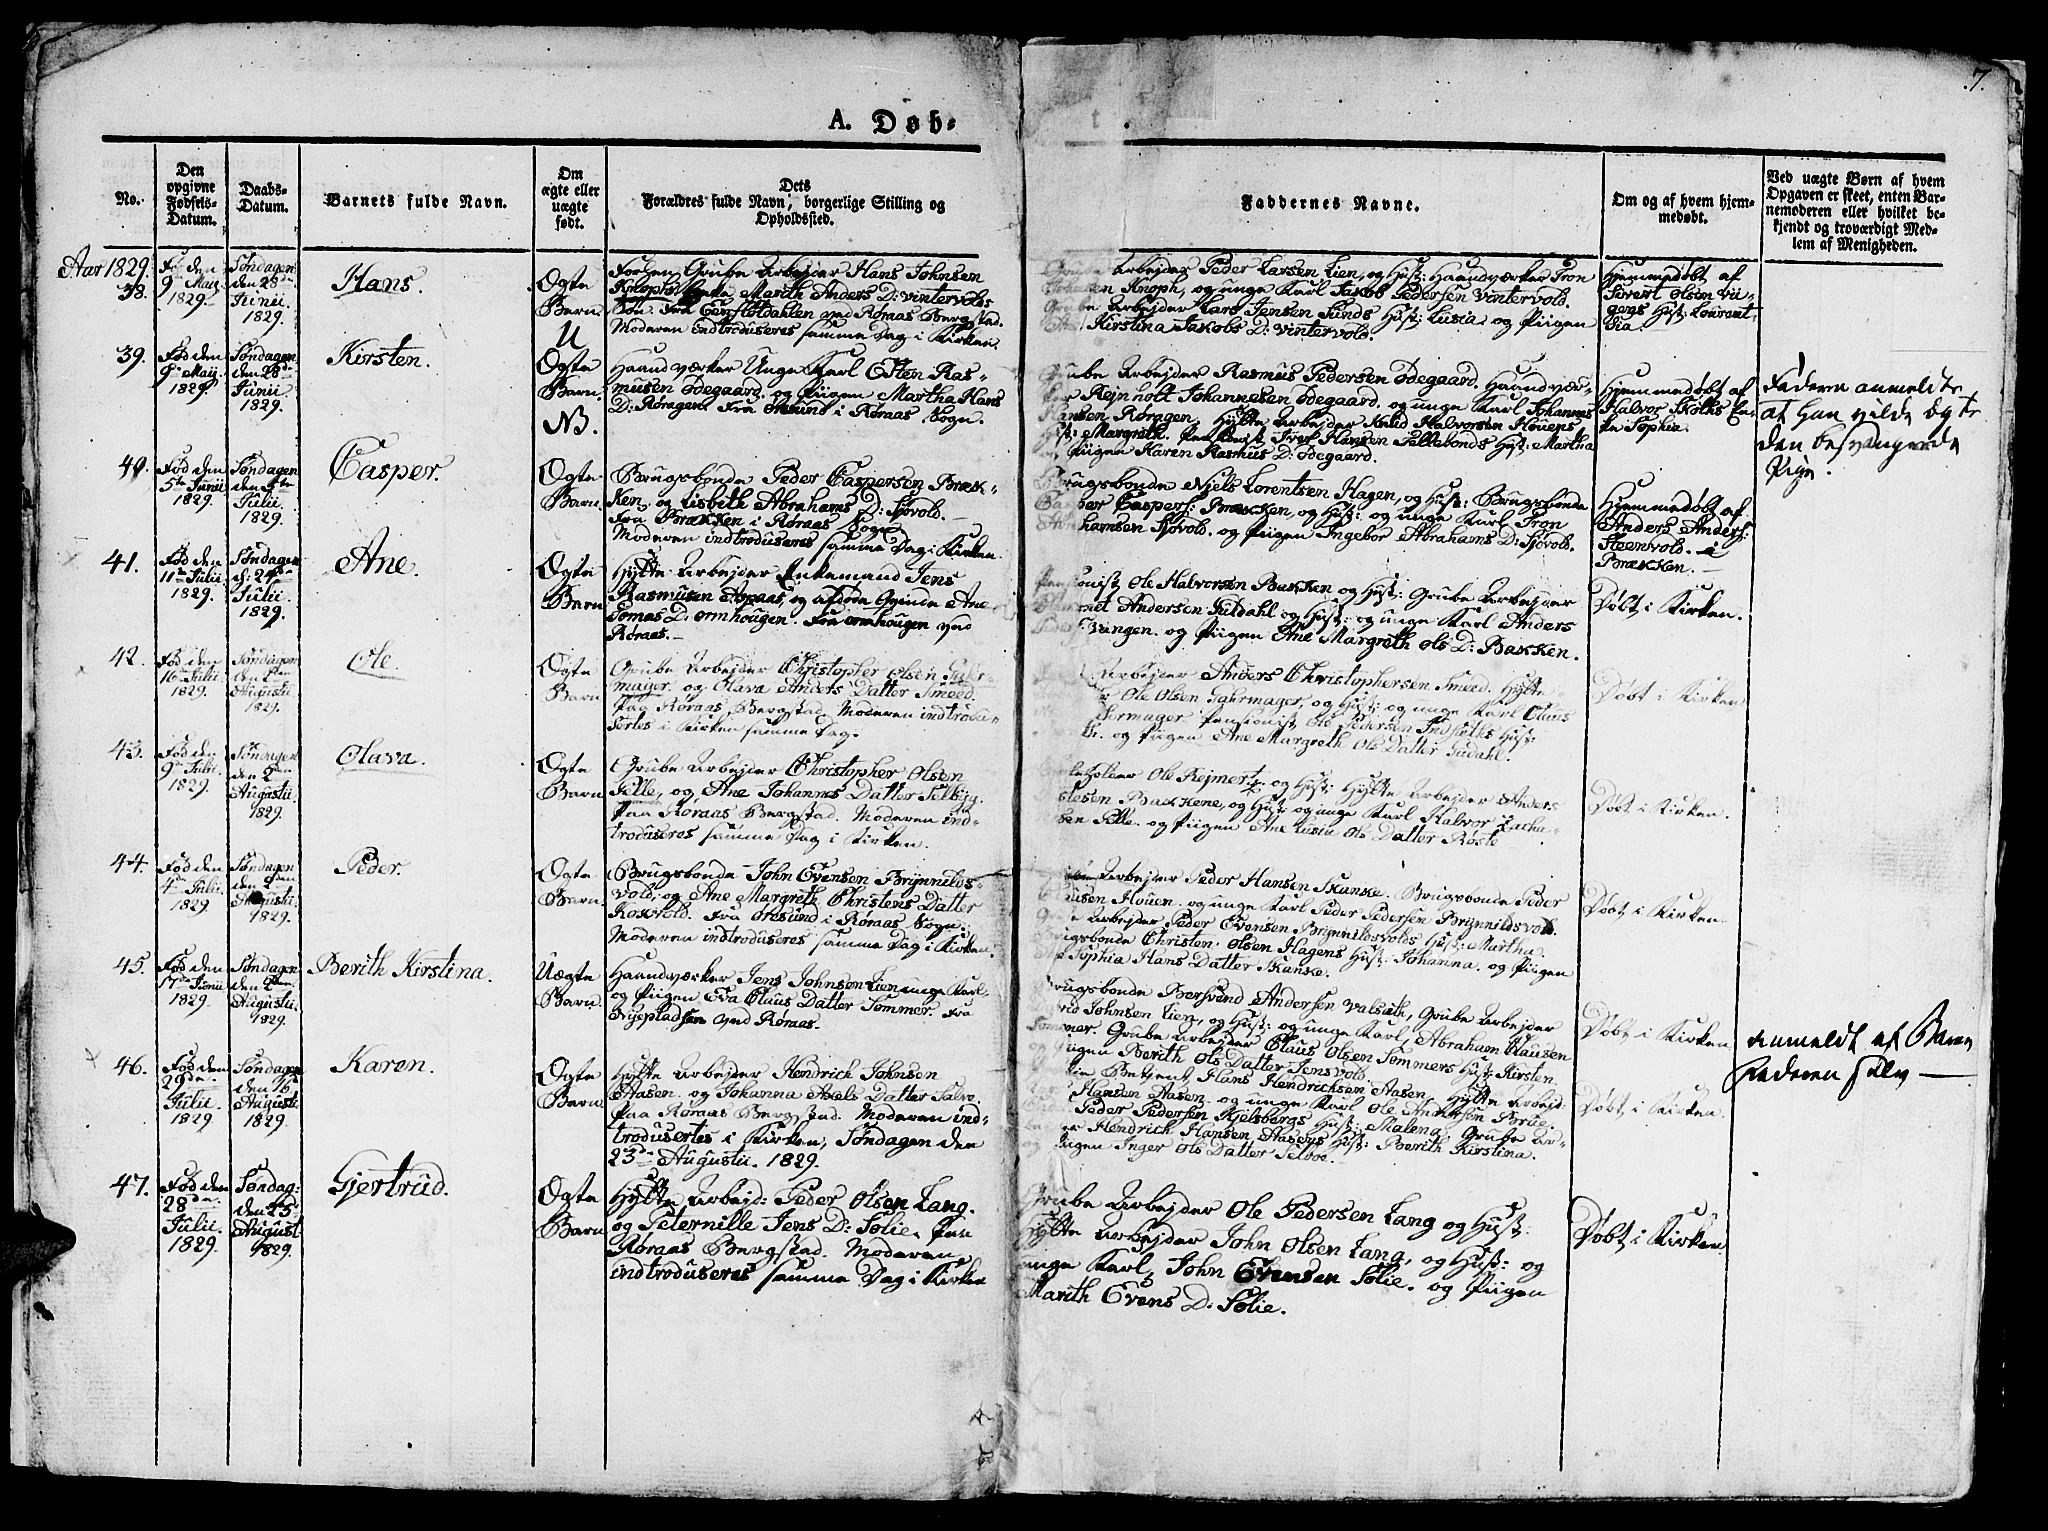 7.
A. Døb-
t.
No.
Den
opgivne
Fødsels-
Datum.
Daabs-
Datum.
Barnets fulde Navn.
Om
ægte eller
uægte
født.
Dets
Forældres fulde Navn, borgerlige Stilling og
Opholdssted.
Faddernes Navne.
Om og af hvem hjem-
medøbt.
Ved uægte Børn af hvem
Opgaven er skeet, enten Bar-
nemoderen eller hvilket be-
kjendt og troværdigt Med-
lem af Menigheden.
Aar 1829.
38.
Fød den
9 Maij
1829
Søndagen
den 28de
Junii
1829.
Hans.
Ægte
Barn.
Grube Arbejder Hans Johnsen
Knoph Marith Anders D: Vintervolds
ved Røraas Bergstad.
Moderen indtroduseres samme Dag i Kirken.
Arbejder Peder Larsen Lien, og Hust: Haandværker Tron
Johansen Knoph, og unge Karl Jakob Pedersen Vintervold.
Arbejder Lars Jensen Sunds Hust: Lusia og Piigen
Kirstina Jakobs D: Vintervold.
Hjemmedøbt af
Sivert Olsen Vii-
gens Hust: Lourant-
sia
39.
Fød den
9de Maij.
1829.
Søndagen
den 28de
Junii
1829.
Kirsten.
U
Ægte
Barn
NB.
Haandværker Unge Karl Østen Ras-
musen Ødegaard. og Piigen Martha Hans
D: Røragen. Fra Øresund i Røraas Sogn.
Grube Arbejder Rasmus Pedersen Ødegaard. Haandvær-
ker Rejnholt Johannesen Ødegaard. og unge Karl Johannes
Hansen Røragen, Hytte Arbejder Halvorsen Houens
Hust: Margreth. Iver Hansen Hust: Martha
og Piigen Karen Rasmus D: Ødegaard.
Hjemmedøbt af
Halvor Skotts En-
ke Sophia.
Faderen anmeldte
at han vilde Ægte
den besvangrede
Pige.
40.
Fød den
5te Junii
1829.
Søndagen
den 5te
Julii.
1829.
Casper.
Ægte
Barn.
Brugsbonde Peder Caspersen Bræk-
ken, og Lisbeth Abrahams D: Sjøvold.
Fra Brækken i Røraas Sogn
Moderen indtroduseres samme Dag i Kirken
Brugsbonde Njels Lorentsen Hagen, og Hust: Brugsbonde
Casper Caspers: Brækken, og Hust: og unge Karl Tron
Abrahamsen Sjøvold. og Piigen Ingebor Abrahams D: Sjøvold.
Hjemmedøbt af
Anders Anders:
Steenvold. i
Brækken.
41.
Fød den
11te Julii
1829.
Søndagen
Julii.
1829.
Ane.
Ægte
Barn
Hytte Arbejder Enkemand Jens
Rasmusen Aspaas, og afdøde Qvinde Ane
Tomas D: Ormhougen. Fra Ormhougen ved
Røraas.
Pensionist Ole Halvorsen Bakken og Hust: Grube Arbejder
Andersen Guldahl og Hust: og unge Karl Anders
Vingen. og Piigen Ane Margreth Ols D: Bakken.
Døbt i Kirken.
42.
Fød den
16de Julii
1829.
Søndagen
den 2den
Augustii
1829.
Ole.
Ægte
Barn
Grube Arbejder Christopher Olsen Gahr-
mager. og Olava Anders Datter Smeed.
Paa Røraas Bergstad. Moderen indtrodu-
sertes i Kirken samme Dag.
Arbejder Anders Christophersen Smeed. Hytte
Ole Olsen Gahrmager, og Hust: og unge Karl Claus
Pensionist Ole Pedersen Indseths Hust:
og Piigen Ane Margreth Ols Datter Gudahl.
Døbt i Kirken
43.
Fød den
9de Julii.
1829.
Søndagen
den 2den
Augustii.
1829.
Olava.
Ægte
Barn
Grube Arbejder Christopher Olsen
og Ane Johannes Datter Selbyg.
Paa Røraas Bergstad. Moderen ind-
troduseres samme Dag i Kirken.
Skoleholder Ole Rejmert, og Hust: Hytte Arbejder Anders
Olesen Bakkene, og Hust: og unge Karl Halvor Zacha-
og Piigen Ane Lusia Ols Datter Røste
Døbt i Kirken.
44.
Fød den
4de Julii.
1829.
Søndagen
den 2den
Augustii
1829.
Peder.
Ægte
Barn.
Brugsbonde John Evensen Brynnilds-
vold, og Ane Margreth Christens Datter
Koxvold. Fra Øresund i Røraas Sogn.
Moderen indtroduseres samme Dag i Kirken.
Arbejder Peder Hansen Skanke. Brugsbonde Peder
Houen. og unge Karl Peder Pedersen Brynnildsvold.
Grube Arbejder Peder Evensen Brynnildsvolds Hust: Martha.
Brugsbonde Christen Olsen Hagens Hust: Johanna. og Piigen
Ane Sophia Hans Datter Skanke.
Døbt i Kirken.
45.
Fød den
17de Junii
1829.
Søndagen
den 2den
Augustii.
1829.
Berith Kirstina.
Uægte
Barn.
Haandværker Jens Johnsen Lien unge Karl.
og Piigen Eva Claus Datter Sommer. Fra
Nyepladsen ved Røraas.
Brugsbonde Bersvend Andersen Valsæth, Grube Arbejder
Johnsen Lien, og Hust: og unge Karl, Abraham Clausen
Sommer. Grube Arbejder Claus Olsen Sommers Hust: Kirsten
og Piigen Berith Ols Datter Jensvold.
Døbt i Kirken
anmeldt af Barne
Faderen selv
46.
Fød den
29de
Julii
1829
Søndagen
den 16de
Augustii
1829.
Karen.
Ægte
Barn.
Hytte Arbejder Hendrich Johnsen
Aasen. og Johanna Axels Datter Salvo.
Paa Røraas Bergstad. Moderen ind-
trodusertes i Kirken, Søndagen den
23de Augustii. 1829.
Betjent Hans Hendrichsen Aasen. Hytte Arbejd:
Hansen Aasen. og unge Karl Ole Andersen Brue.
Peder Pedersen Kjelsbergs Hust: Malena, Grube Ar-
Hendrich Hansen Aasens Hust: Berith Kirstina.
Piigen Inger Ols Datter Selboe.
Døbt i Kirken.
47.
Fød den
28de
Julii
1829
Søndag:
den 23de
August
1829.
Gjertrud.
Ægte
Barn
Hytte Arbejd: Peder Olsen Lang.
og Peternille Jens D: Solie. Paa
Røraas Bergstad. Moderen
indtroduseres samme Dag i Kirken
Grube Arbejder Ole Pedersen Lang og Hust:
Hytte Arbejder John Olsen Lang, og Hust: og
unge Karl, John Evensen Solie. og Piigen
Marith Evens D: Solie.
Døbt i Kirken